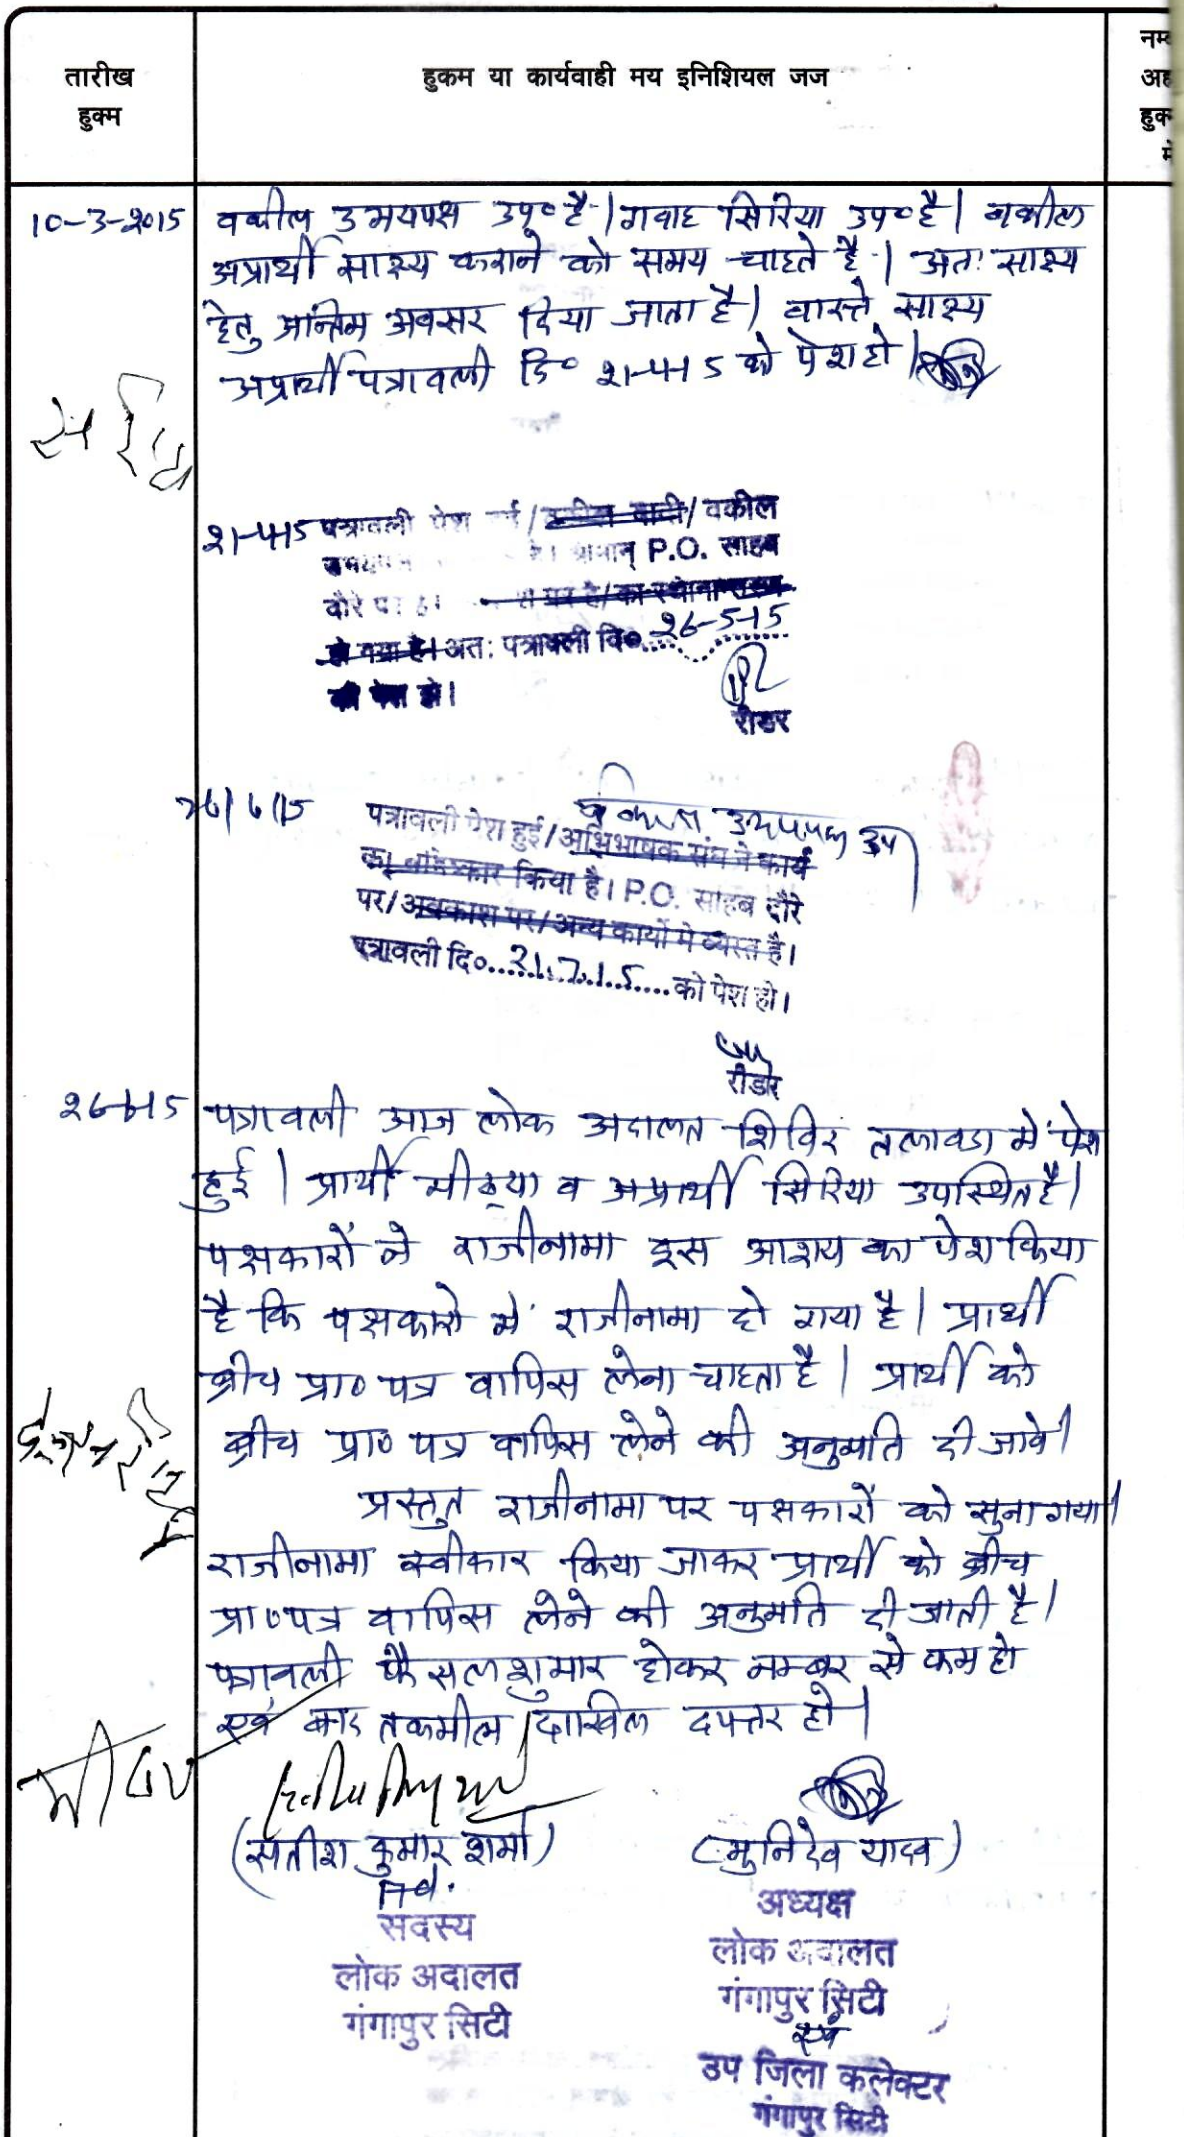 तारीख
हुक्म
हुकम या कार्यवाही मय इनिशियल जज
नम्ब
अह
हुक्म
में
10-3-2015
वकील उभयपक्ष उप० है। गवाह सिरिया उप० है। वकील
अप्रार्थी साक्ष्य कराने को समय चाहते है। अतः साक्ष्य
हेतु अन्तिम अवसर दिया जाता है। वास्ते साक्ष्य
अप्रार्थी पत्रावली दि० 21-4-15 को पेश हो।
21-4-15 पत्रावली पेश हुई / वकील वादी / वकील
है। श्रीमान् P.O. साहब
दौरे पर है। पर है/का स्थानान्तरण
हो गया है। अतः पत्रावली दि०....26-5-15
को पेश हो।
रीडर
26/6/15
उभयपक्ष उप
पत्रावली पेश हुई/अभिभाषक संघ ने कार्य
का बहिष्कार किया है। P.O. साहब दौरे
पर/अवकाश पर/अन्य कार्यो मे व्यस्त है।
पत्रावली दि०...21.7.15....को पेश हो।
रीडर
26-6-15
पत्रावली आज लोक अदालत शिविर तलावडा में पेश
हुई। प्रार्थी मीठ्या व अप्रार्थी सिरिया उपस्थित है।
पक्षकारों ने राजीनामा इस आशय का पेश किया
है कि पक्षकारो में राजीनामा हो गया है। प्रार्थी
ब्रीच प्रा० पत्र वापिस लेना चाहता है। प्रार्थी को
ब्रीच प्रा० पत्र वापिस लेने की अनुमति दी जावे।
प्रस्तुत राजीनामा पर पक्षकारों को सुना गया।
राजीनामा स्वीकार किया जाकर प्रार्थी को ब्रीच
प्रा०पत्र वापिस लेने की अनुमति दी जाती है।
पत्रावली फैसल शुमार होकर नम्बर से कम हो
एवं बाद तकमील दाखिल दफ्तर हो।
(सतीश कुमार शर्मा)
(मुनिदेव यादव)
सदस्य
लोक अदालत
गंगापुर सिटी
अध्यक्ष
लोक अदालत
गंगापुर सिटी
एवं
उप जिला कलेक्टर
गंगापुर सिटी